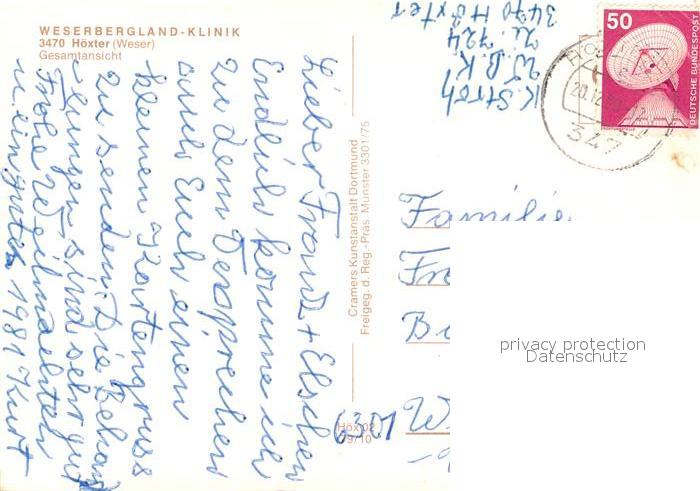 WESERBERGLAND-KLINIK
3470 Höxter (Weser)
Gesamtansicht
Lieber Franz + Elschen
Endlich komme ich
zu dem Versprechen
auch Euch einen
kleinen Kartengruss
zu senden. Die Behand
lungen sind sehr gut
Frohe Weihnachten
u. ein gutes 1981 Kurt
Cramers Kunstanstalt Dortmund
Freigeg. d. Reg.-Präs. Münster 3301/75
Höx 02
79/10
K. Stroh
W. B. K.
Zi. 724
3470 Höxter
50
DEUTSCHE BUNDESPOST
20.12.
347
Familie
Fr
Bu
6301 W
privacy protection
Datenschutz